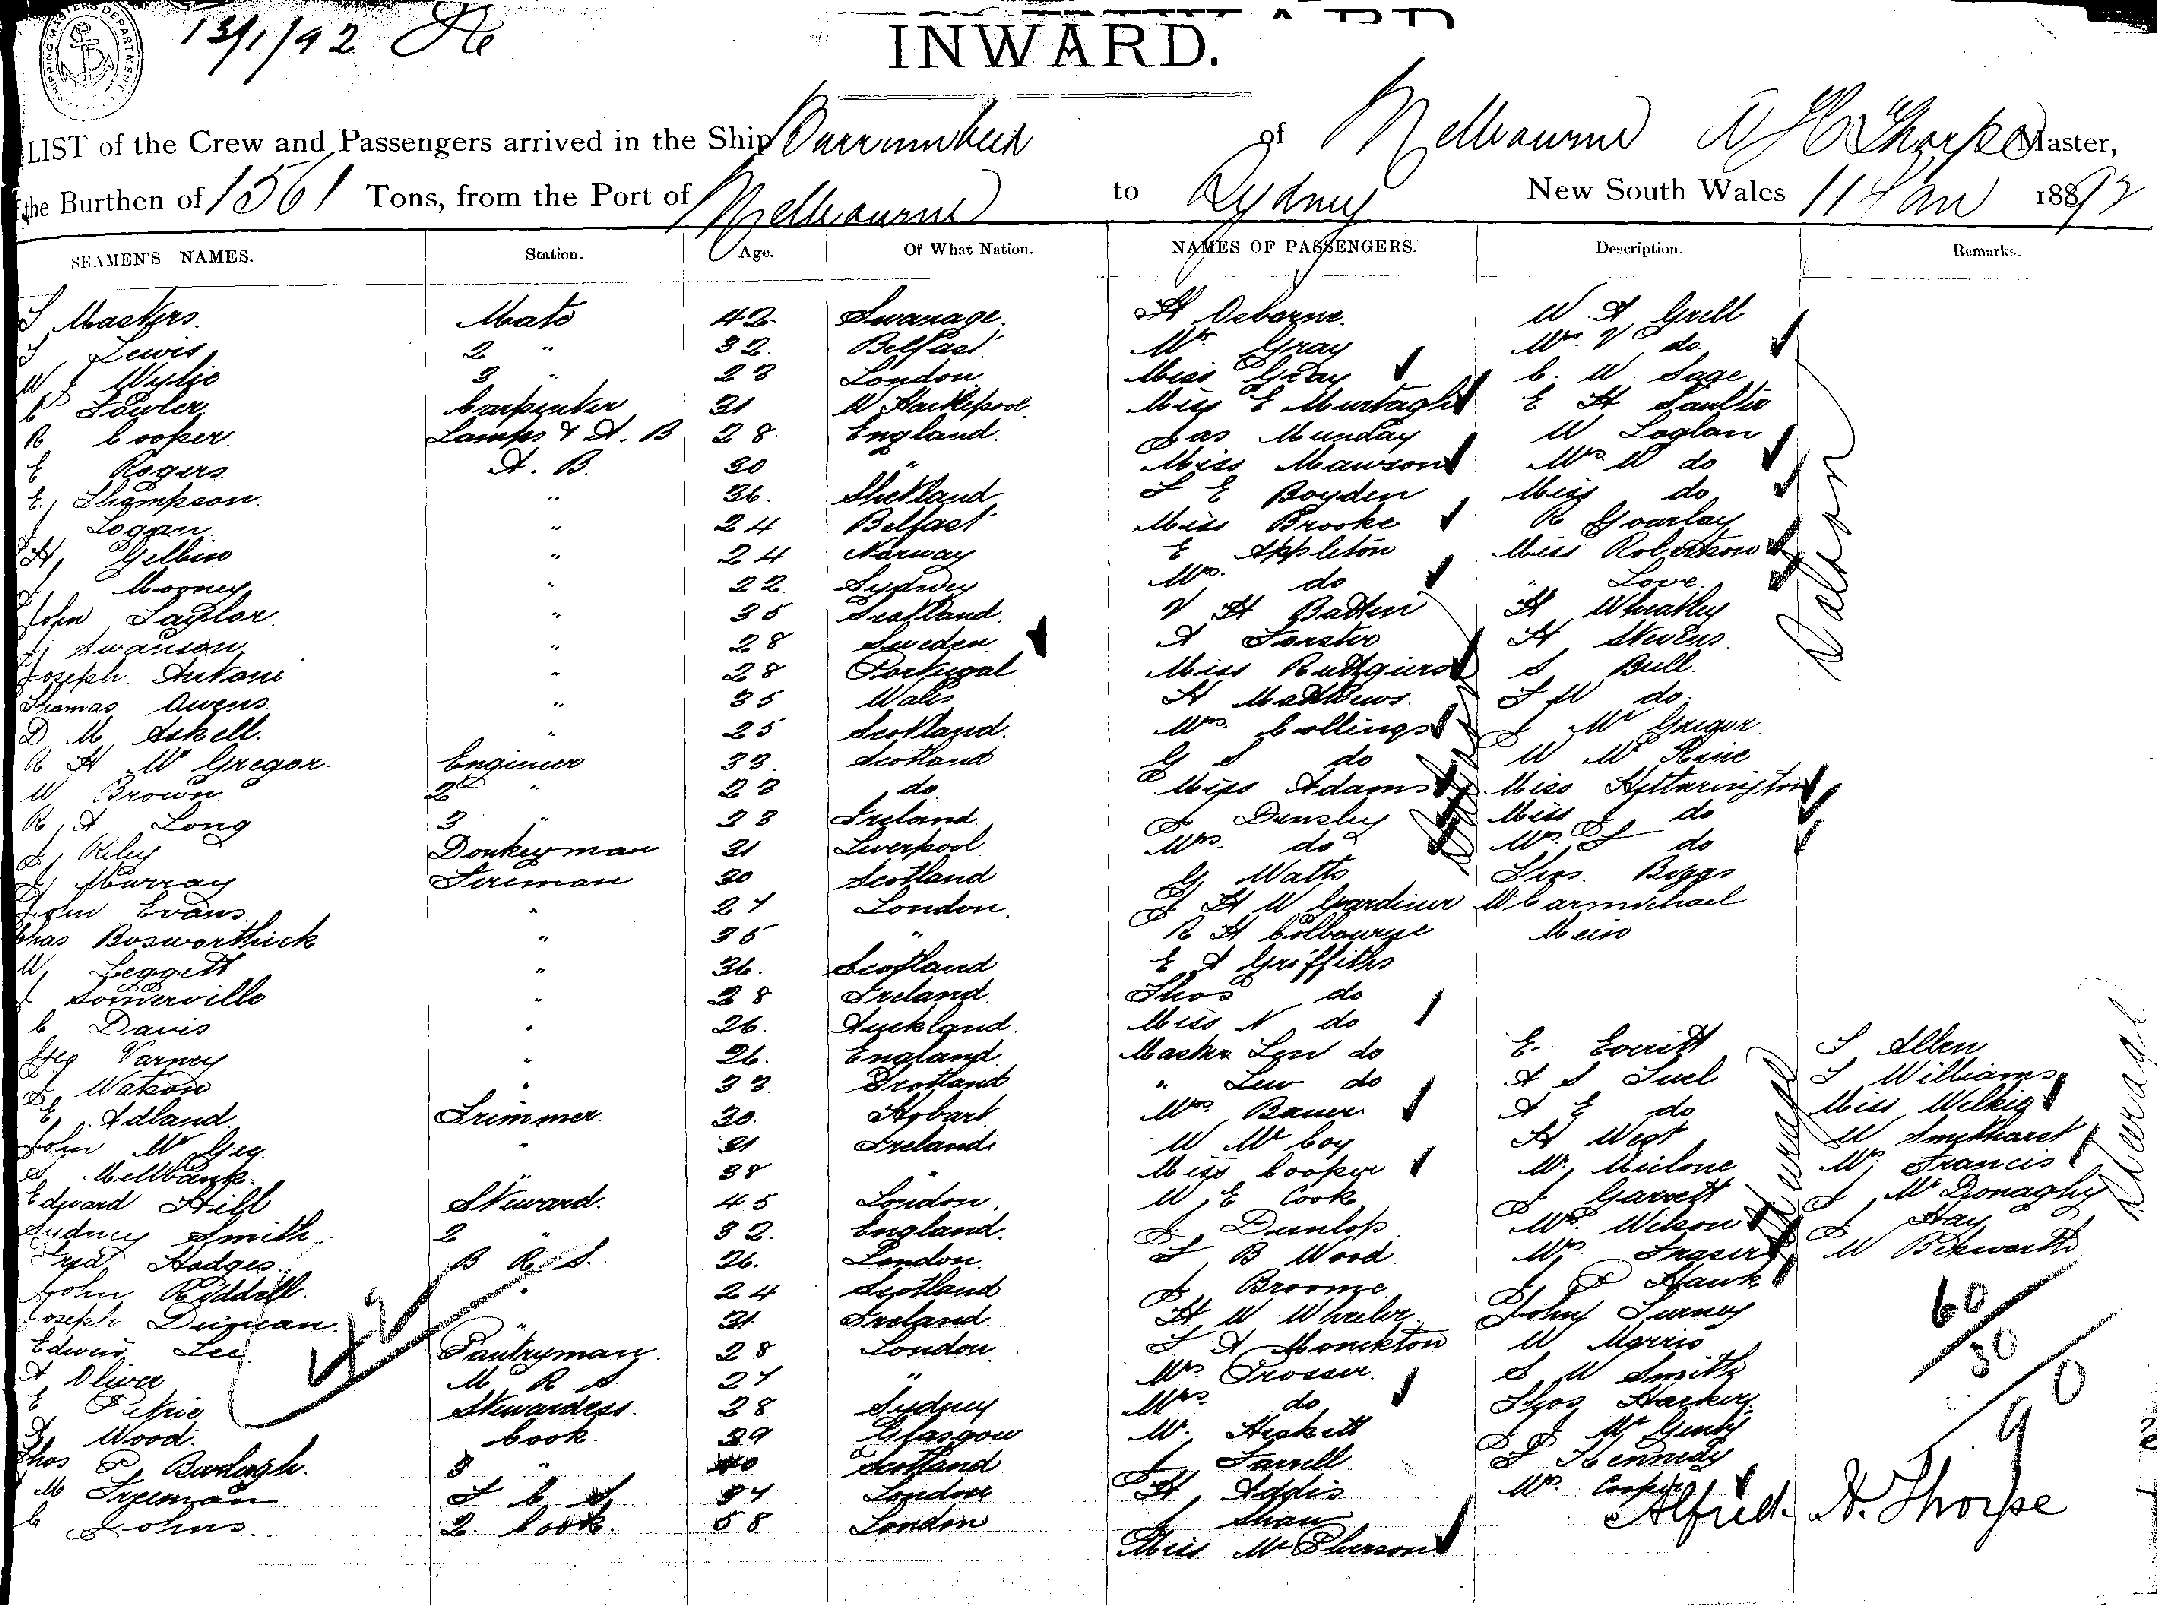 13/1/92
INWARD.
LIST of the Crew and Passengers arrived in the Ship Burrumbeet of Melbourne A H Thorpe Master,
the Burthen of 1561 Tons, from the Port of Melbourne to Sydney New South Wales 11 Jan 1892
SEAMEN'S NAMES. Station. Age. Of What Nation. NAMES OF PASSENGERS. Description. Remarks.
Masters Mate 42 Swanage. H Osborne. W A Grell
Lewis 2 " 32. Belfast Mr Gray Mrs V do
W J Wylie 3 " 23 London Miss Gray C. W. Sage
C Fowler Carpenter 31 W Hartlepool. Miss E Murtagh E H Saulter
R Cooper Lamps & A. B 28 England. Jas Munday W Loglan
E Rogers A. B. 30 " Miss Mawson Mrs W do
E, Thompson. " 36. Shetland L E Boyden Miss do
J Logan " 24 Belfast Miss Brooke R Gourlay
H, " 24 Norway E Appleton Miss Robertson
J Mooney " 22 Sydney Mrs. do " Love
John Taylor " 35 Scotland. V H Batten H Wheatley
J, Swanson " 28 Sweden A Forster H Stevens.
Joseph Antoni " 28 Portugal Miss S Bull
Thomas Owens " 35 Wales H Matthews. J W do
D M Askell. " 25 Scotland. Mrs Collings J Mc Gregor
R H Mc Gregor. Engineer 39. Scotland G S do W Mc
W Brown 2 " 23 do Miss Adams Miss Hetherington
R, A Long 3 " 33 Ireland J Densley Miss J do
J, Riley Donkeyman 31 Liverpool Mrs. do Mrs J do
J, Murray Fireman 30 Scotland G Watts Thos. Biggs
John Evans " 27 London. J H W Gardiner W Carmichael
Chas Bosworthick " 35 " R H Colbourne
W, Leggett " 36. Scotland E A Griffiths
J Somerville " 28 Ireland. Thos do
C Davis " 26. Auckland. Miss N do
Varney " 26. England. Master Len do E. Everitt J Allen
J, Watson " 33 Scotland " Lew do A S Juel J Williams
E, Adland Trimmer 30. Hobart Mrs. Bauer A E do Miss Wilkie
John Mc " 31 Ireland. W Mc Coy H West W
Mellbank. " 38 " Miss Cooper W, Malone Mr Francis
Edward Hill Steward. 45 London. W E Cook J Garrett J Mc Donaghy
Sydney Smith. 2 " 32. England. J Dunlop Mrs. Wilson J Hay
Fred Hodges B R S. 26. London. L B Wood Mrs. Fraser W Bexworth
John Riddell. " 24 Scotland J Broome J P Hawk
Joseph Duncan. " 31 Ireland H W Wheeler John Turney
Edwin Lee Pantryman. 28 London J A Monckton W Morris
A Oliver M R S. 27 " Mr. Prosser. S W Smith
E Petrie Stewardess. 28 Sydney Mrs. do Thos Harker
J, Wood. Cook 39 Glasgow W. Heskett J Mc Ginty
Thos P Burleigh. 3 " 40 Scotland J Farrell J J Kennedy
M Freeman F C S. 37 London H Addis Mrs. Cooper
C Johns. 2 Cook. 58 London J Shaw
Miss Mc Pherson
Saloon
Steerage
Steerage
42
60
30
90
Alfred. H. Thorpe